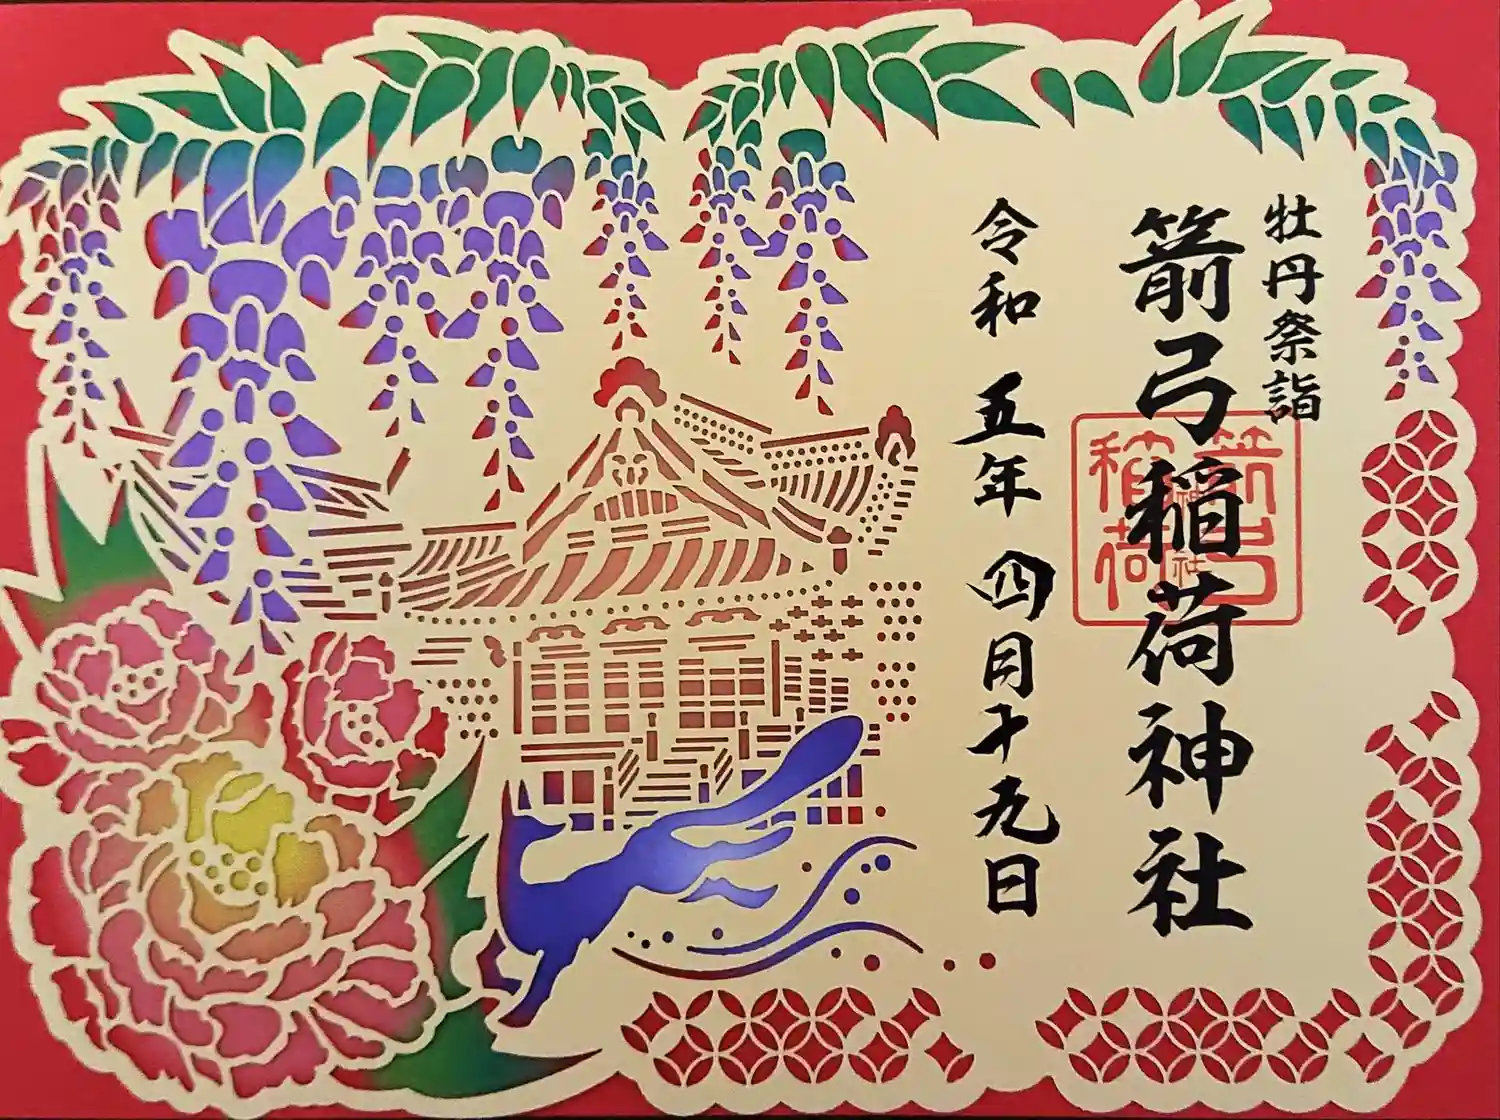 牡丹祭詣
箭弓稲荷神社
箭弓稲荷神社
令和五年四月十九日